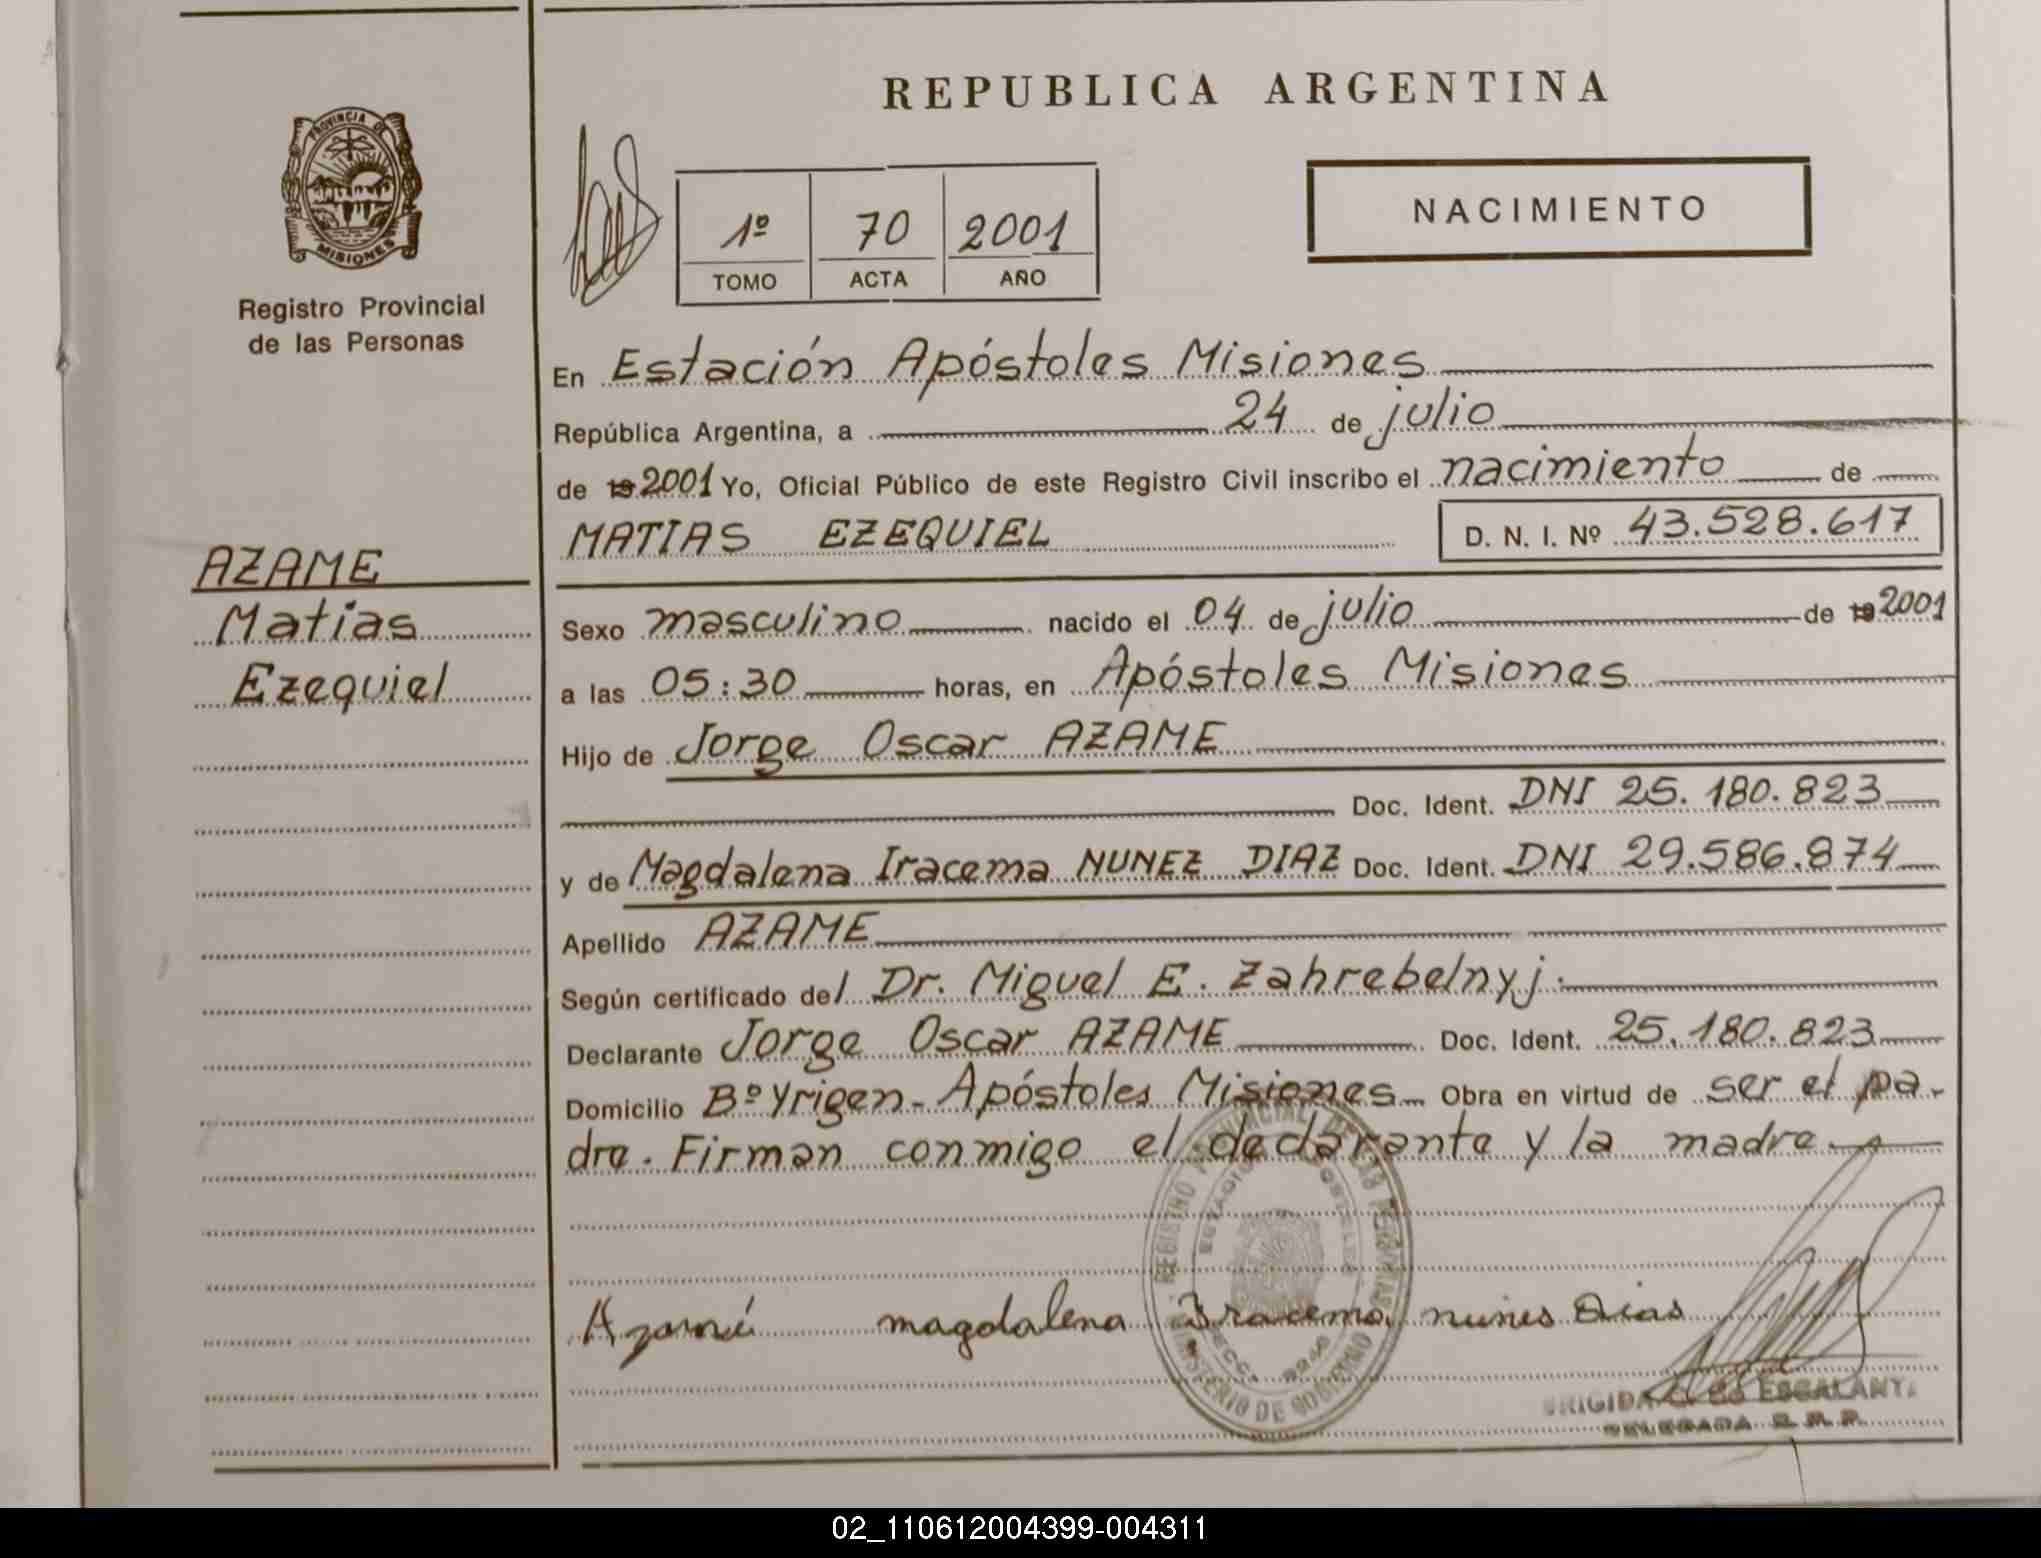 REPUBLICA ARGENTINA
PROVINCIA DE
MISIONES
Registro Provincial
de las Personas
1º 70 2001
TOMO ACTA AÑO
NACIMIENTO
En Estación Apóstoles Misiones
República Argentina, a 24 de julio
de 19 2001 Yo, Oficial Público de este Registro Civil inscribo el nacimiento de
MATIAS EZEQUIEL D. N. I. Nº 43.528.617
AZAME
Matias
Ezequiel
Sexo masculino nacido el 04 de julio de 19 2001
a las 05:30 horas, en Apóstoles Misiones
Hijo de Jorge Oscar AZAME
Doc. Ident. DNI 25.180.823
y de Magdalena Iracema NUNEZ DIAZ Doc. Ident. DNI 29.586.874
Apellido AZAME
Según certificado del Dr. Miguel E. Zahrebelnyj.
Declarante Jorge Oscar AZAME Doc. Ident. 25.180.823
Domicilio Bº Yrigen - Apóstoles Misiones Obra en virtud de ser el pa-
dre. Firman conmigo el declarante y la madre.
magdalena Iracema nunes Dias
REGISTRO PROVINCIAL DE LAS PERSONAS
MINISTERIO DE GOBIERNO
ESCALANTE
DELEGADA R.P.P.
02_110612004399-004311